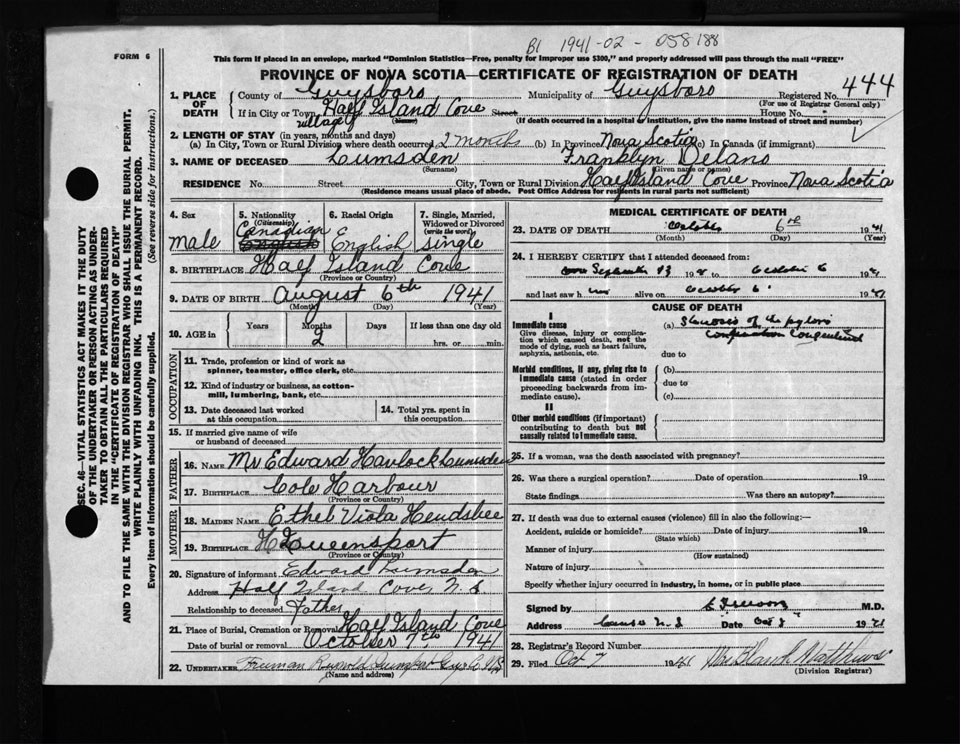 B1 1941-02-058188
FORM 6
This form if placed in an envelope, marked "Dominion Statistics—Free, penalty for improper use $300," and properly addressed will pass through the mail "FREE"
PROVINCE OF NOVA SCOTIA—CERTIFICATE OF REGISTRATION OF DEATH
444
1. PLACE OF DEATH
County of Guysboro Municipality of Guysboro Registered No.
(For use of Registrar General only)
If in City or Town Half Island Cove Street House No.
village (If death occurred in a hospital or institution, give the name instead of street and number)
2. LENGTH OF STAY (in years, months and days)
(a) In City, Town or Rural Division where death occurred 2 months (b) In Province Nova Scotia (c) In Canada (if immigrant)
3. NAME OF DECEASED Lumsden Franklyn Delano
(Surname) (Given name or names)
RESIDENCE No. Street City, Town or Rural Division Half Island Cove Province Nova Scotia
(Residence means usual place of abode. Post Office Address for residents in rural parts not sufficient)
4. Sex
male
5. Nationality
(Citizenship)
Canadian
English
6. Racial Origin
English
7. Single, Married, Widowed or Divorced
(write the word)
single
8. BIRTHPLACE Half Island Cove
(Province or Country)
9. DATE OF BIRTH August 6th 1941
(Month) (Day) (Year)
10. AGE in Years Months Days If less than one day old
2 hrs. or min.
OCCUPATION
11. Trade, profession or kind of work as
spinner, teamster, office clerk, etc.
12. Kind of industry or business, as cotton-
mill, lumbering, bank, etc.
13. Date deceased last worked
at this occupation
14. Total yrs. spent in
this occupation
15. If married give name of wife
or husband of deceased
FATHER
16. NAME Mr Edward Havlock Lumsden
17. BIRTHPLACE Cole Harbour
(Province or Country)
MOTHER
18. MAIDEN NAME Ethel Viola Hendsbee
19. BIRTHPLACE Queensport
(Province or Country)
20. Signature of informant Edward Lumsden
Address Half Island Cove, N.S
Relationship to deceased Father
21. Place of Burial, Cremation or Removal Half Island Cove
Date of burial or removal October 7th 1941
22. UNDERTAKER Freeman
(Name and address)
MEDICAL CERTIFICATE OF DEATH
23. DATE OF DEATH October 6th 1941
(Month) (Day) (Year)
24. I HEREBY CERTIFY that I attended deceased from:
September 13 19 to October 6 1941
and last saw h alive on October 6 1941
CAUSE OF DEATH
I
Immediate cause
Give disease, injury or complication which caused death, not the mode of dying, such as heart failure, asphyxia, asthenia, etc.
(a) Stenosis of the pylorus
Congenital
due to
Morbid conditions, if any, giving rise to immediate cause (stated in order proceeding backwards from immediate cause)
(b)
due to
(c)
II
Other morbid conditions (if important) contributing to death but not causally related to immediate cause.
25. If a woman, was the death associated with pregnancy?
26. Was there a surgical operation? Date of operation 19
State findings Was there an autopsy?
27. If death was due to external causes (violence) fill in also the following:—
Accident, suicide or homicide? Date of injury 19
(State which)
Manner of injury
(How sustained)
Nature of injury
Specify whether injury occurred in industry, in home, or in public place
Signed by M.D.
Address Canso N.S Date Oct 8 1941
28. Registrar's Record Number
29. Filed Oct 7 1941 Mrs Blanch Matthews
(Division Registrar)
SEC. 46—VITAL STATISTICS ACT MAKES IT THE DUTY
OF THE UNDERTAKER OR PERSON ACTING AS UNDER-
TAKER TO OBTAIN ALL THE PARTICULARS REQUIRED
IN THE "CERTIFICATE OF REGISTRATION OF DEATH"
AND TO FILE THE SAME WITH THE DIVISION REGISTRAR WHO SHALL ISSUE THE BURIAL PERMIT.
WRITE PLAINLY WITH UNFADING INK. THIS IS A PERMANENT RECORD.
Every item of information should be carefully supplied. (See reverse side for instructions.)